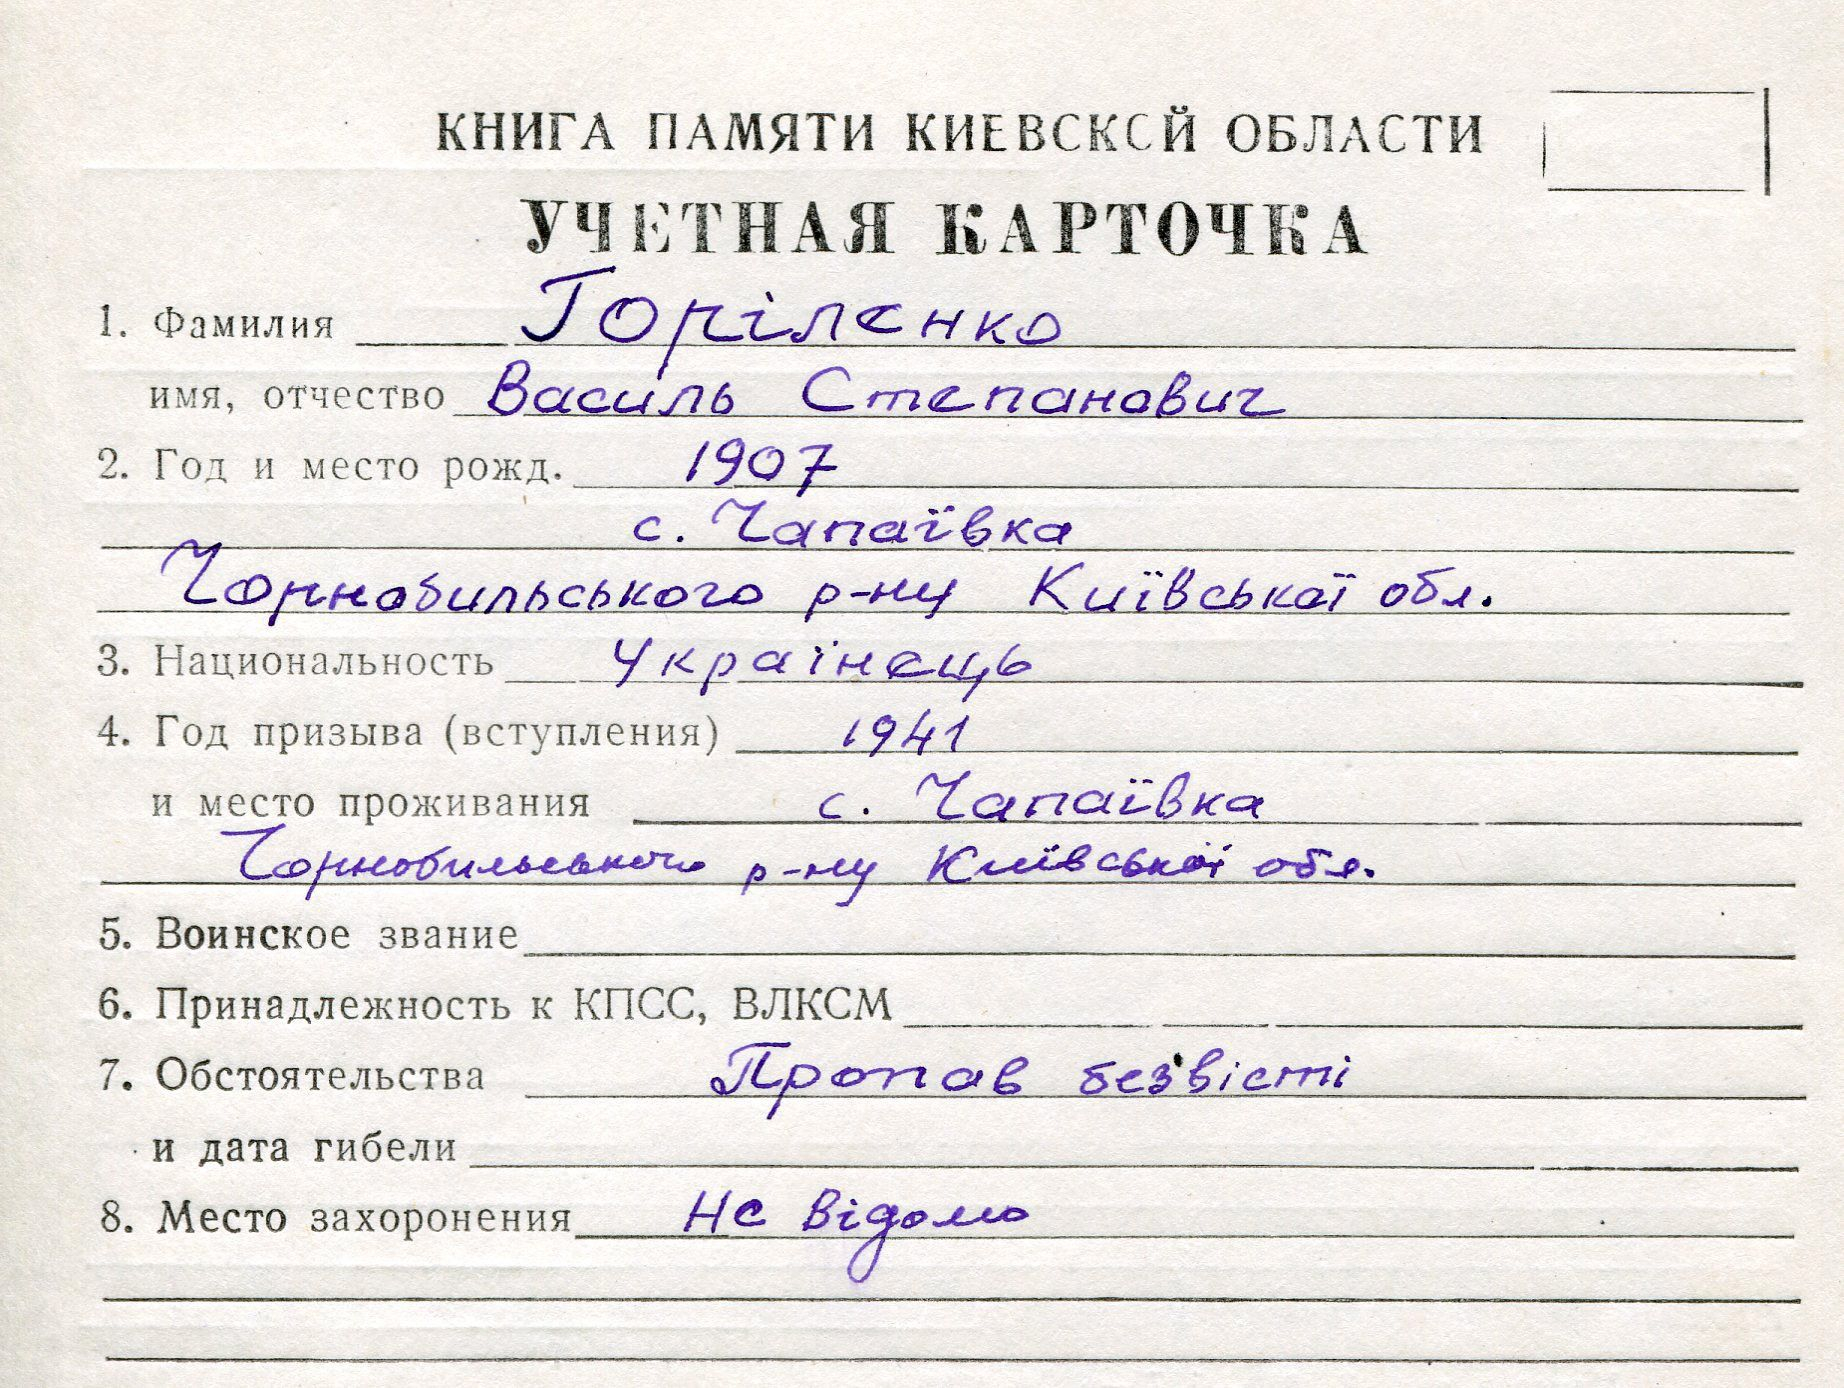 КНИГА ПАМЯТИ КИЕВСКСЙ ОБЛАСТИ
УЧЕТНАЯ КАРТОЧКА
1. Фамилия Горіленко
имя, отчество Василь Степанович
2. Год и место рожд. 1907
с. Чапаївка
Чорнобильського р-ну Київської обл.
3. Национальность Українець
4. Год призыва (вступления) 1941
и место проживания с. Чапаївка
Чорнобильського р-ну Київської обл.
5. Воинское звание
6. Принадлежность к КПСС, ВЛКСМ
7. Обстоятельства Пропав без'вісті
и дата гибели
8. Место захоронения Не відомо